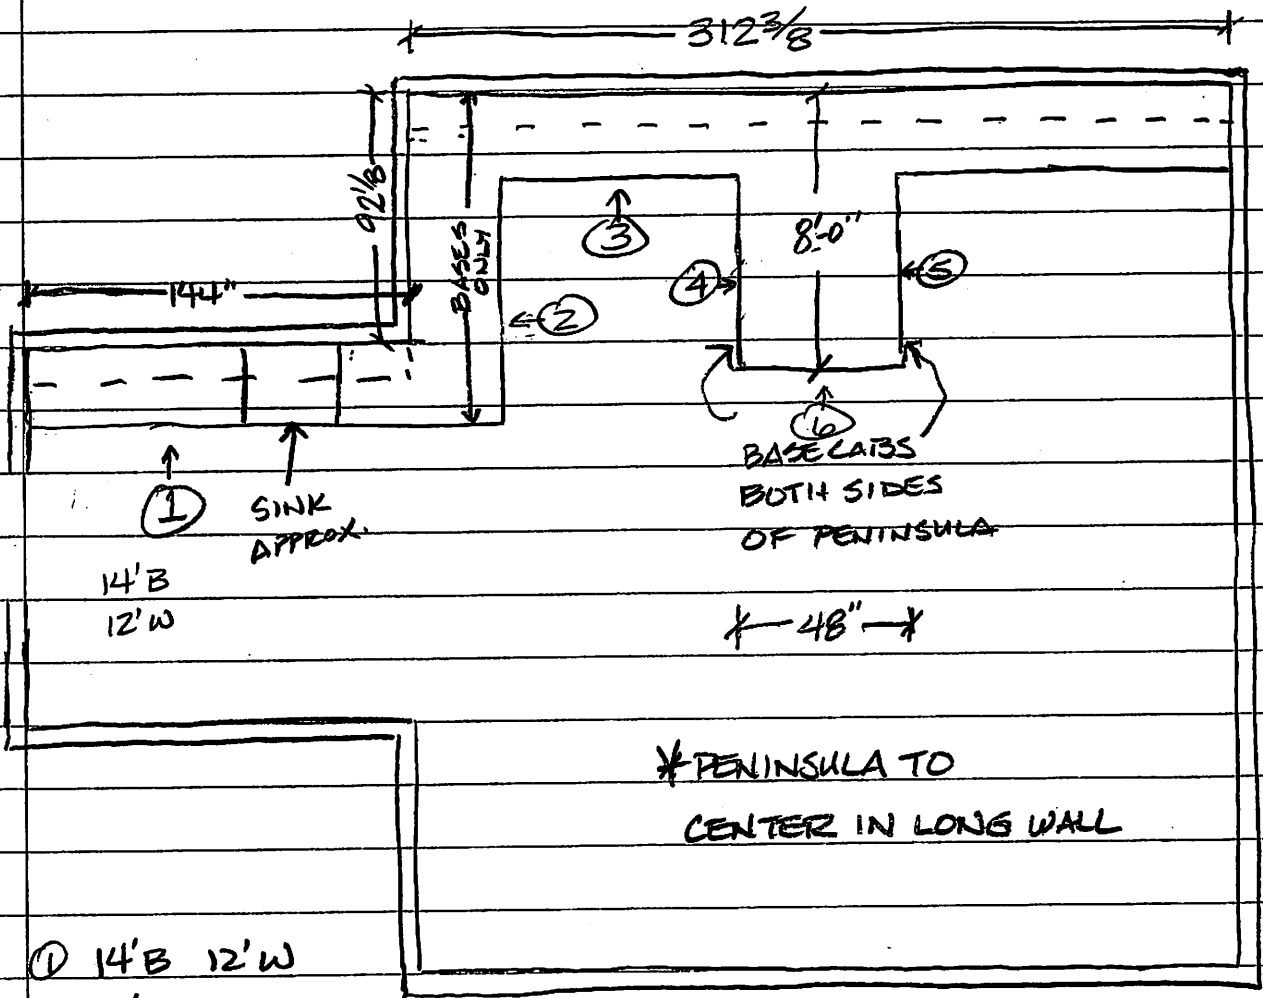 312 3/8
92 1/8
BASES
ONLY
8'-0"
3
4
5
144"
2
6
BASE CABS
BOTH SIDES
OF PENINSULA
1
SINK
APPROX.
14'B
12'W
48"
* PENINSULA TO
CENTER IN LONG WALL
① 14'B 12'W